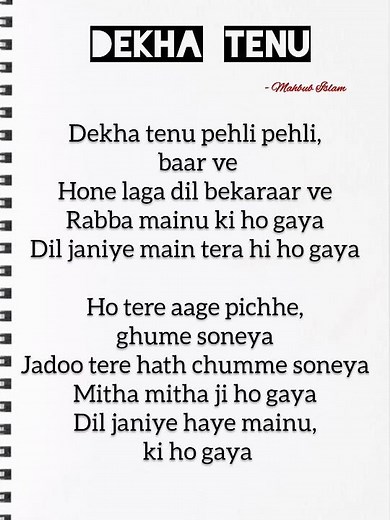 DEKHA TENU
- Mahbub Islam
Dekha tenu pehli pehli,
baar ve
Hone laga dil bekaraar ve
Rabba mainu ki ho gaya
Dil janiye main tera hi ho gaya
Ho tere aage pichhe,
ghume soneya
Jadoo tere hath chumme soneya
Mitha mitha ji ho gaya
Dil janiye haye mainu,
ki ho gaya